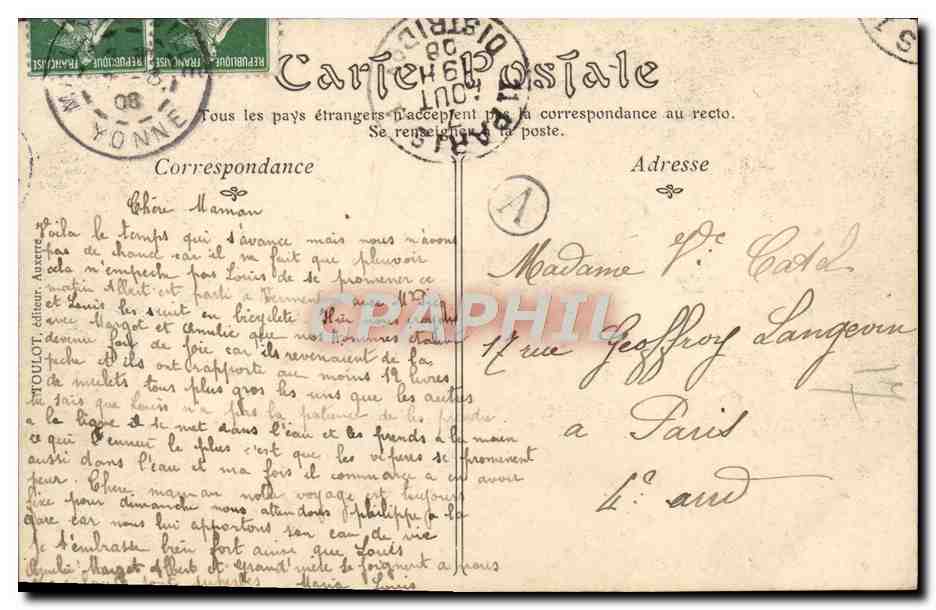 REPUBLIQUE
REPUBLIQUE
YONNE
08
PARIS 11
DISTRIB
19H
7 AOUT
08
Carte Postale
Tous les pays étrangers n'acceptent pas la correspondance au recto.
Se renseigner à la poste.
Correspondance
Chère Maman
Voila le temps qui s'avance mais nous n'avons
pas de chance car il ne fait que pleuvoir
cela n'empeche pas Louis de se promener ce
matin Albert est parti a avec
et Louis les suit en bicyclete Hier nous avons
avec Margot et Amelie que nos hommes etaient
devenu fou de joie car ils revenaient de la
peche et ils ont rapporte au moins 12 livres
de mulets tous plus gros les uns que les autres
tu sais que Louis n'a pas la patience de les prendre
a la ligne il se met dans l'eau et les prends a la main
ce qui l'ennui le plus c'est que les vipères se promenent
aussi dans l'eau et ma fois il commence a en avoir
peur. Chère maman notre voyage est toujours
fixe pour dimanche nous attendons philippe a la
gare car nous lui apportons son eau de vie
Je t'embrasse bien fort ainsi que Louis
Amelie Margot Albert et Grand'mère se joignent a nous
Maria Louis
TOULOT, éditeur, Auxerre
Adresse
A
Madame Ve Catel
17 rue Geoffroy Langevin
a Paris
4e arrd
CPAPHIL